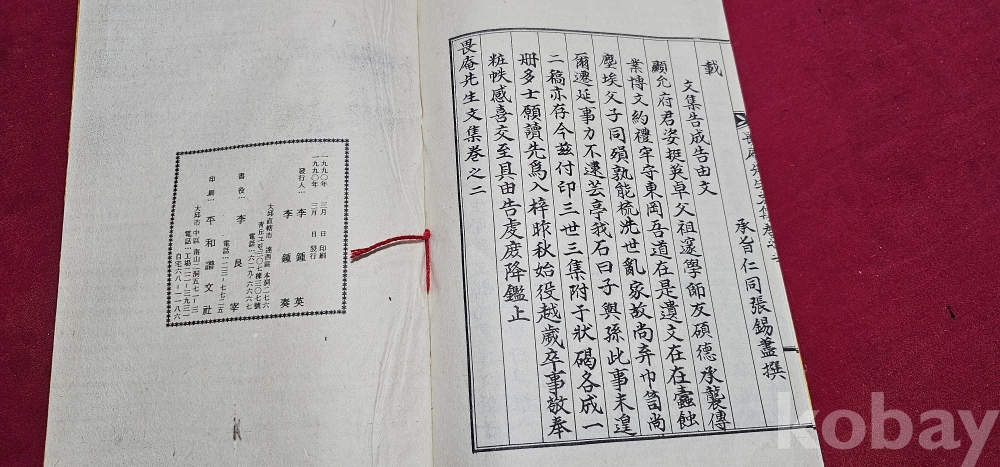 載
承旨仁同張錫藎撰
文集告成告由文
顯允府君姿挺英卓父祖邃學師友碩德承襲傳
業博文約禮牢守東岡吾道在是遺文在在蠹蝕
塵埃父子同殞孰能梳洗世亂家故尚弃巾笥尚
爾遷延事力不逮芸亭我石曰子與孫此事未遑
二稿亦存今玆付印三世三集附于狀碣各成一
册多士願讀先爲入梓昨秋始役越歲卒事敬奉
粧帙感喜交至具由告虔庶降鑑止
畏庵先生文集卷之二
一九九〇年 三月 日 印刷
一九九〇年 三月 日 發行
發行人… 李鍾英
李鍾奏
大邱直轄市 達西區 本洞二七六
電話…
書役… 李良宰
電話…
印刷… 平和譜文社
大邱市 中區 南山二洞五七一-三
電話…工場二二-三九三一
自宅六八-一一八六
kobay